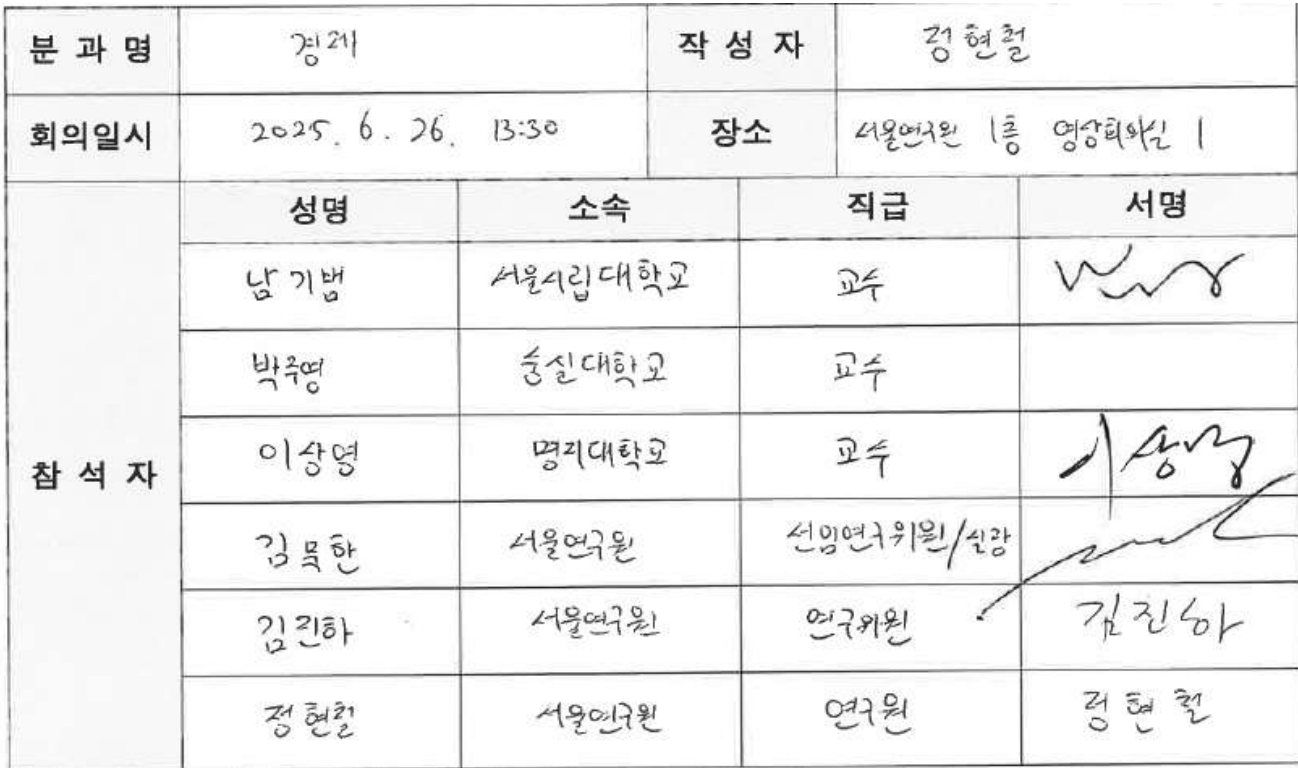 분 과 명 경제 작 성 자 정현철
회의일시 2025. 6. 26. 13:30 장소 서울연구원 1층 영상회의실 1
참 석 자
성명 소속 직급 서명
남기범 서울시립대학교 교수
박주영 숭실대학교 교수
이상영 명지대학교 교수 이상영
김묵한 서울연구원 선임연구위원/실장
김진하 서울연구원 연구위원 김진하
정현철 서울연구원 연구원 정현철